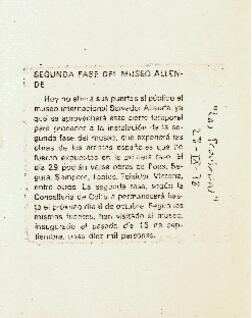 SEGUNDA FASE DEL MUSEO ALLEN-
DE
Hoy no abrirá sus puertas al público el
museo internacional Salvador Allende, ya
que se aprovechará este cierre temporal
para proceder a la instalación de la se-
gunda fase del museo, que expondrá las
obras de los artistas españoles que no
fueron expuestos en la primera fase. El
día 29 podrán verse obras de
Segura, Sempere, Tapies, Teixidor, Victoria,
entre otros. La segunda fase, según la
Conselleria de Cultura permanecerá hasta
el próximo día 8 de octubre. Según las
mismas fuentes, han visitado el museo,
inaugurado el pasado día 15 de sep-
tiembre, unas diez mil personas.
"Las Provincias"